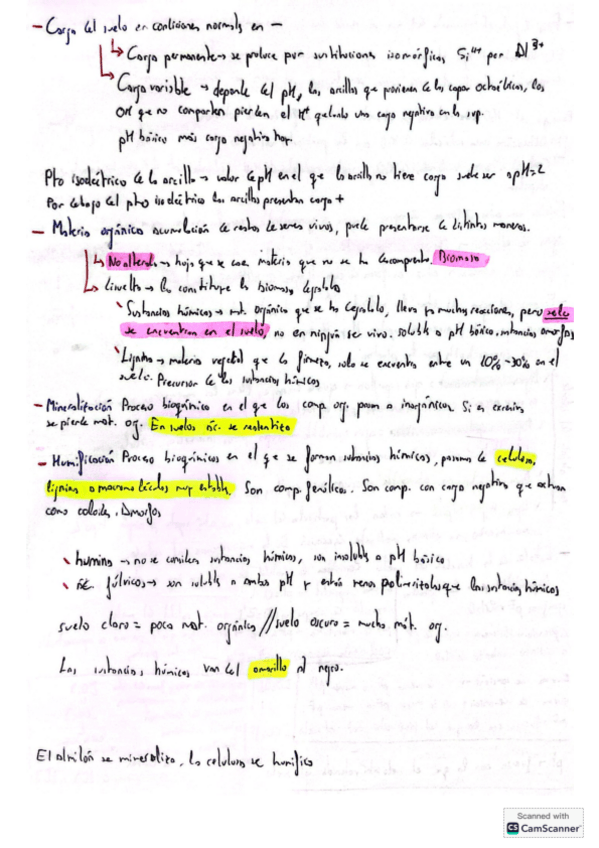 - Carga del suelo en condiciones normales en -
↳ Carga permanente → se produce por sustituciones isomórficas Si⁴⁺ por Al³⁺
↳ Carga variable → depende del pH, las arcillas que provienen de las capas octaédricas, los
OH que no comparten pierden el H⁺ quedando una carga negativa en la sup.
pH básico más carga negativa hay.
Pto isoeléctrico de la arcilla → valor de pH en el que la arcilla no tiene carga suele ser a pH=2
Por debajo del pto isoeléctrico las arcillas presentan carga +
- Materia orgánica acumulación de restos de seres vivos, puede presentarse de distintas maneras.
↳ No alterada → hoja que se cae materia que no se ha descompuesto. Biomasa
↳ disuelta → la constituye la biomasa degradada
Sustancias húmicas → mat. orgánica que se ha degradado, lleva ya muchas reacciones, pero solo
se encuentran en el suelo, no en ningún ser vivo. soluble a pH básico, sustancias amorfas
Lignina → materia vegetal que da firmeza, solo se encuentra entre un 10% - 30% en el
suelo. Precursor de las sustancias húmicas
- Mineralización Proceso bioquímico en el que los comp. org. pasan a inorgánicos. Si es excesivo
se pierde mat. org. En suelos ác. se ralentiza
- Humificación Proceso bioquímico en el que se forman sustancias húmicas, pasamos de celulosa,
lignina a macromoléculas muy estables. Son comp. fenólicos. Son comp. con carga negativa que actúan
como coloides. Amorfos
humina → no se consideran sustancias húmicas, son insolubles a pH básico
ác. fúlvicos → son solubles a ambos pH y están menos polimerizados que las sustancias húmicas
suelo claro = poca mat. orgánica // suelo oscuro = mucha mat. org.
Las sustancias húmicas van del amarillo al negro.
El almidón se mineraliza, la celulosa se humifica
Scanned with
CS CamScanner